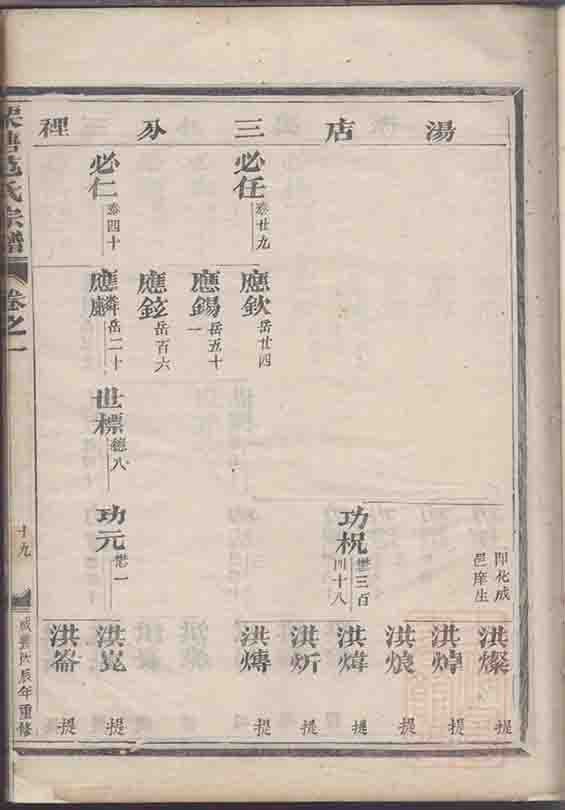 湯店三分裡
必任 卷廿九
必仁 卷四十
應欽 岳廿四
應錫 岳五十一
應鉉 岳百六
應麟 岳二十
世標 德八
即化成
邑庠生
功柷 懋三百四十八
功元 懋一
洪燦 提
洪焯 提
洪烺 提
洪煒 提
洪炘 提
洪𤎖 提
洪崑 提
洪崙 提
范氏宗譜
卷之一
十九
咸豐丙辰年重修